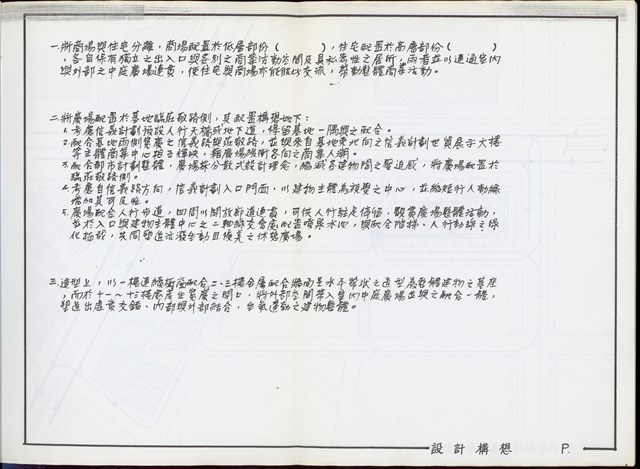 一.將商場與住宅分離，商場配置於低層部份（　　　），住宅配置於高層部份（　　　）
，各自保有獨立之出入口與各別之商業活動空間及具私密性之居所，兩者並以通過室內
與外部之中庭廣場連貫，使住宅與商場亦能彼此交流，帶動整體商業活動。
二.將廣場配置於基地臨莊敬路側，其配置構想如下：
1.考慮信義計劃預設人行天橋或地下道，保留基地一隅與之配合。
2.配合基地兩側寬廣之信義路與莊敬路，並與來自基地東北向之信義計劃世貿展示大樓
等主體商業中心相互輝映，藉廣場緩衝各向之商業人潮。
3.配合都市計劃整體，廣場採分散式設計理念，縮減各建物間之壓迫感，將廣場配置於
臨莊敬路側。
4.考慮自信義路方向，信義計劃入口門面，以建物主體為視覺之中心，並縮短行人動線
增加其可及性。
5.廣場配合人行步道，四周以開放廊道連貫，可供人行駐足停留，觀賞廣場整體活動，
並於入口與建物主體中心之二軸線交會處配置噴泉水池，與配合階梯、人行動線之綠
化植栽，共同塑造活潑生動且優美之休憩廣場。
三.造型上，以一樓連續街座配合二、三樓合層配合牆面呈水平帶狀之造型為整體建物之基座
，而於十一～十三樓處產生寬廣之開口，將外部空間帶入室內中庭廣場並與之融合一體，
塑造出虛實交錯、內部與外部結合，生氣運動之建物整體。
設計構想　P.